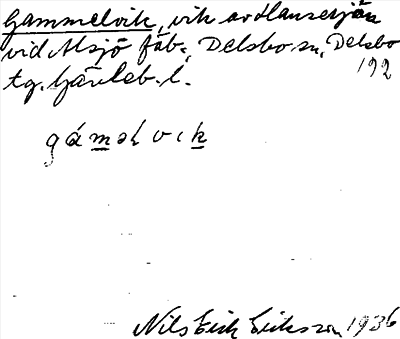 Gammelvik, vik av Hansesjön
vid Alsjö fäb., Delsbo sn, Delsbo
192
tg. Gävleb. l.
gáməl v ı k
Nils Erik Eriksson 1936